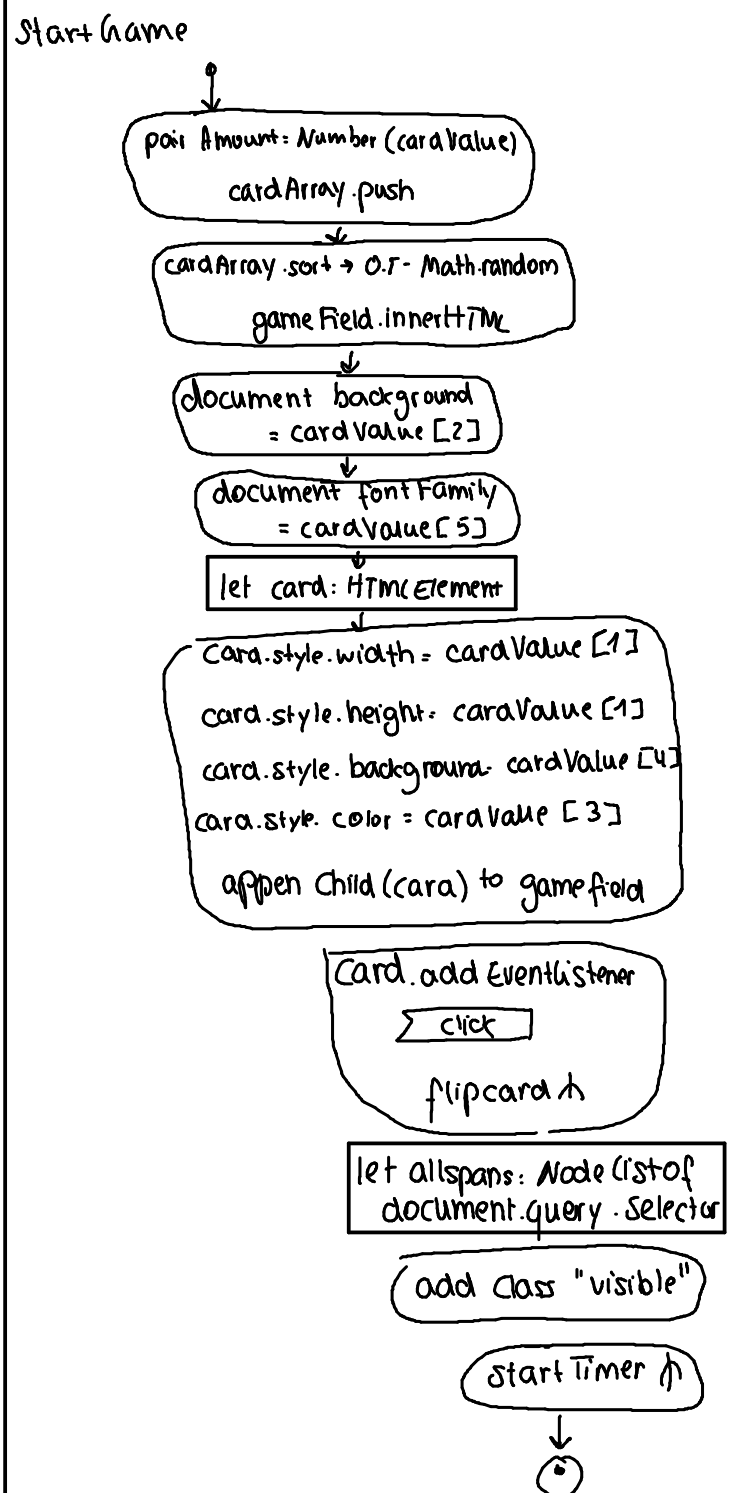 StartGame
pair Amount: Number (cardValue)
cardArray.push
cardArray.sort → 0.5- Math.random
gameField.innerHTML
document background
= cardValue [2]
document fontFamily
= cardValue [5]
let card: HTMLElement
card.style.width = cardValue [1]
card.style.height= cardValue [1]
card.style.background= cardValue [4]
card.style.color = cardValue [3]
appen Child(card) to gamefield
card.add EventListener
click
flipcard
let allspans: NodeListof
document.query.Selector
add class "visible"
startTimer